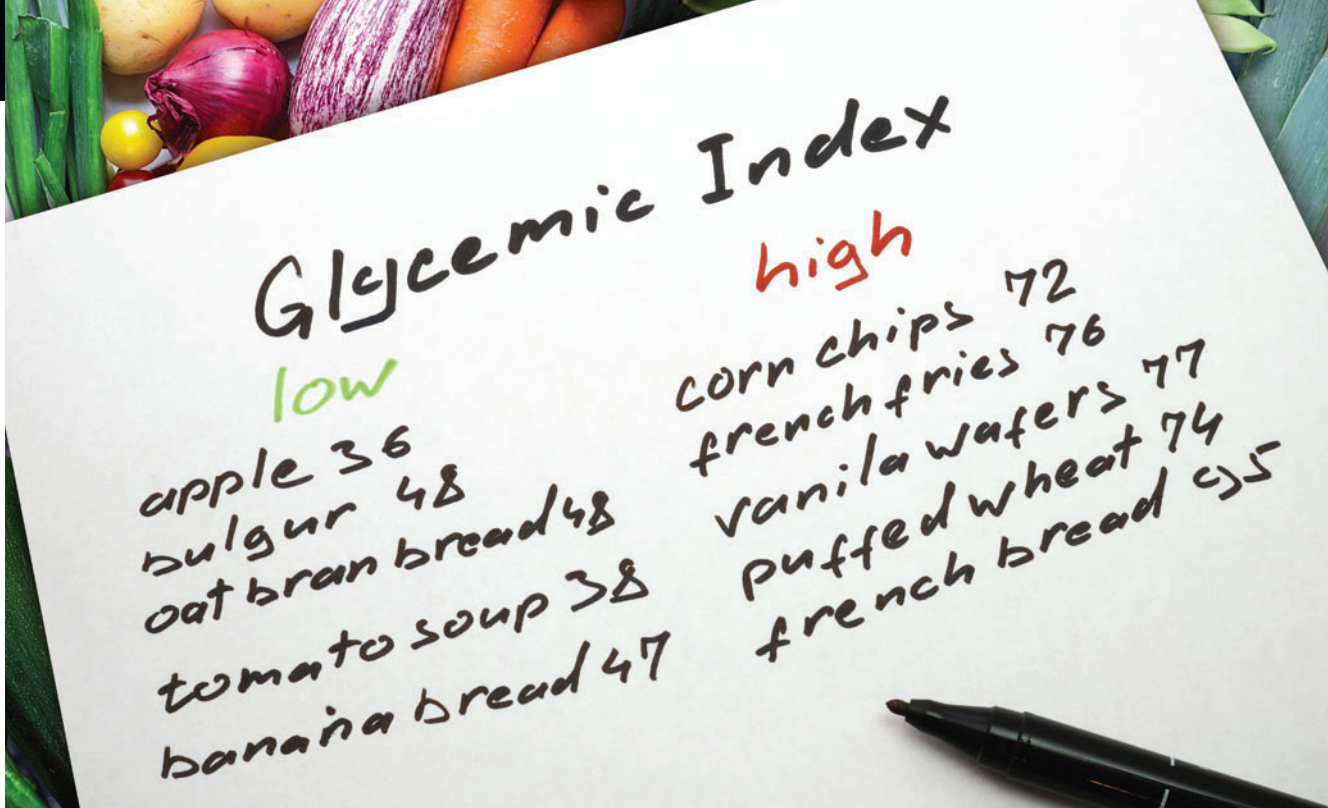 Glycemic Index
low
apple 36
bulgur 48
oat bran bread 48
tomato soup 38
banana bread 47
high
corn chips 72
french fries 76
vanila wafers 77
puffed wheat 74
french bread 95